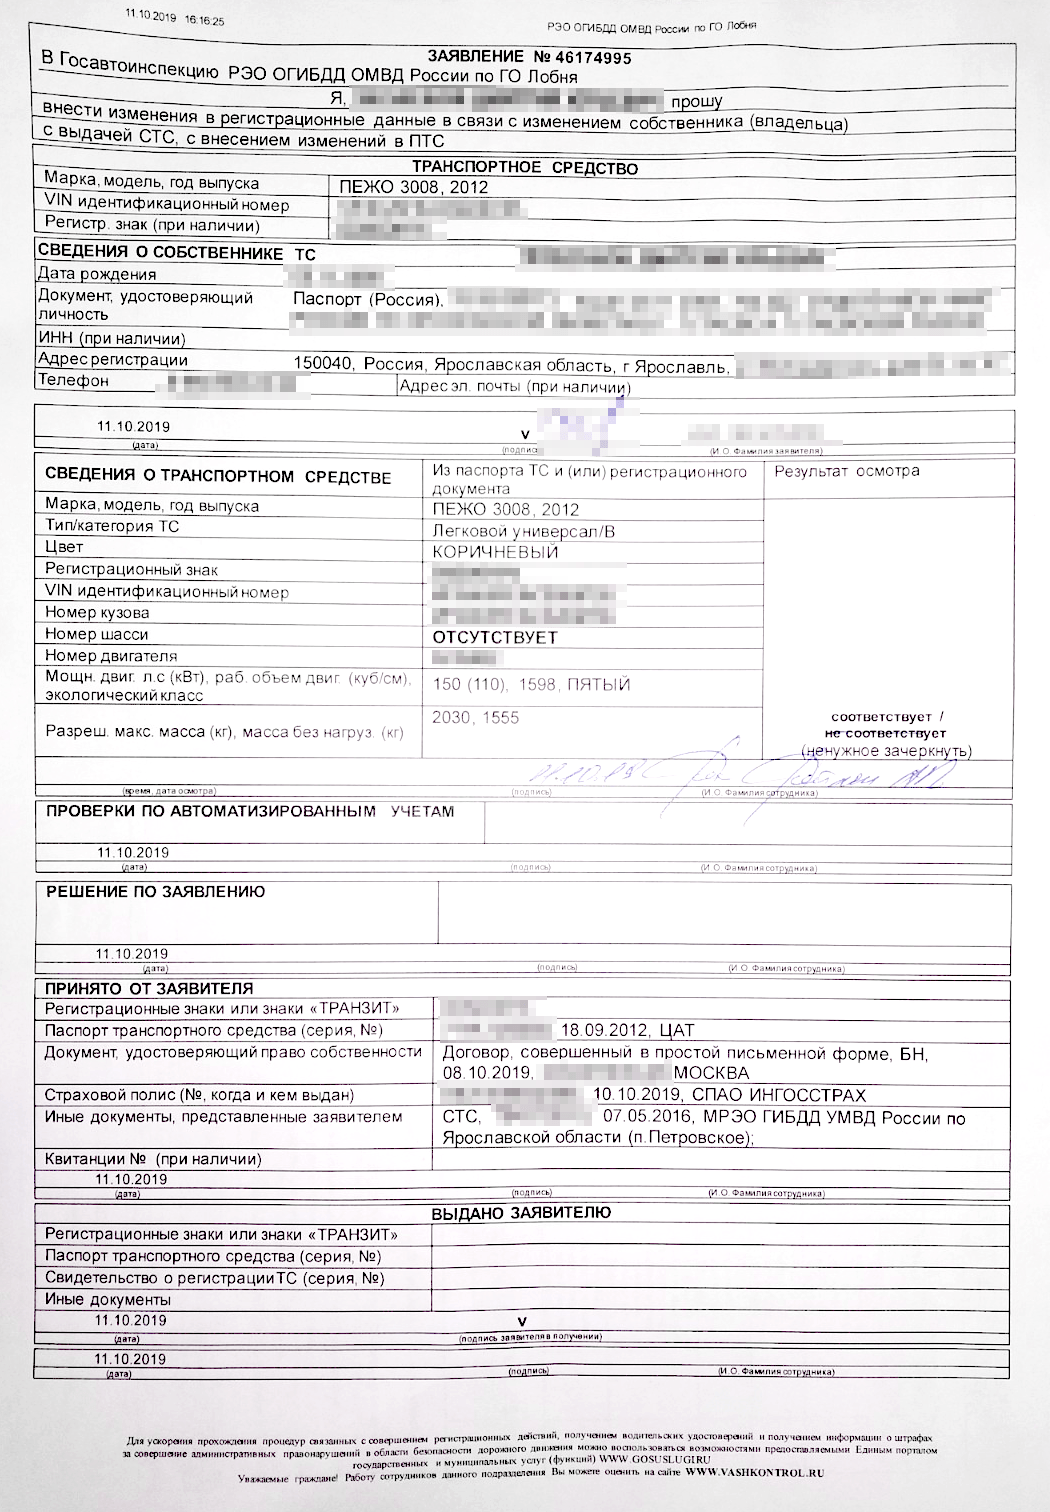 11.10.2019 16:16:25
РЭО ОГИБДД ОМВД России по ГО Лобня
ЗАЯВЛЕНИЕ № 46174995
В Госавтоинспекцию РЭО ОГИБДД ОМВД России по ГО Лобня
Я, прошу
внести изменения в регистрационные данные в связи с изменением собственника (владельца)
с выдачей СТС, с внесением изменений в ПТС
ТРАНСПОРТНОЕ СРЕДСТВО
Марка, модель, год выпуска ПЕЖО 3008, 2012
VIN идентификационный номер
Регистр. знак (при наличии)
СВЕДЕНИЯ О СОБСТВЕННИКЕ ТС
Дата рождения
Документ, удостоверяющий Паспорт (Россия),
личность
ИНН (при наличии)
Адрес регистрации 150040, Россия, Ярославская область, г Ярославль,
Телефон Адрес эл. почты (при наличии)
11.10.2019 v
(дата) (подпись) (И.О. Фамилия заявителя)
СВЕДЕНИЯ О ТРАНСПОРТНОМ СРЕДСТВЕ Из паспорта ТС и (или) регистрационного Результат осмотра
документа
Марка, модель, год выпуска ПЕЖО 3008, 2012
Тип/категория ТС Легковой универсал/В
Цвет КОРИЧНЕВЫЙ
Регистрационный знак
VIN идентификационный номер
Номер кузова
Номер шасси ОТСУТСТВУЕТ
Номер двигателя
Мощн. двиг. л.с (кВт), раб. объем двиг. (куб/см), 150 (110), 1598, ПЯТЫЙ
экологический класс
2030, 1555
соответствует /
Разреш. макс. масса (кг), масса без нагруз. (кг) не соответствует
(ненужное зачеркнуть)
11.10.19
(время, дата осмотра) (подпись) (И.О. Фамилия сотрудника)
ПРОВЕРКИ ПО АВТОМАТИЗИРОВАННЫМ УЧЕТАМ
11.10.2019
(дата) (подпись) (И.О. Фамилия сотрудника)
РЕШЕНИЕ ПО ЗАЯВЛЕНИЮ
11.10.2019
(дата) (подпись) (И.О. Фамилия сотрудника)
ПРИНЯТО ОТ ЗАЯВИТЕЛЯ
Регистрационные знаки или знаки «ТРАНЗИТ»
Паспорт транспортного средства (серия, №) 18.09.2012, ЦАТ
Документ, удостоверяющий право собственности Договор, совершенный в простой письменной форме, БН,
08.10.2019, МОСКВА
Страховой полис (№, когда и кем выдан) 10.10.2019, СПАО ИНГОССТРАХ
Иные документы, представленные заявителем СТС, 07.05.2016, МРЭО ГИБДД УМВД России по
Ярославской области (п.Петровское);
Квитанции № (при наличии)
11.10.2019
(дата) (подпись) (И.О. Фамилия сотрудника)
ВЫДАНО ЗАЯВИТЕЛЮ
Регистрационные знаки или знаки «ТРАНЗИТ»
Паспорт транспортного средства (серия, №)
Свидетельство о регистрации ТС (серия, №)
Иные документы
11.10.2019 v
(дата) (подпись заявителя в получении)
11.10.2019
(дата) (подпись) (И.О. Фамилия сотрудника)
Для ускорения прохождения процедур связанных с совершением регистрационных действий, получением водительских удостоверений и получением информации о штрафах
за совершение административных правонарушений в области безопасности дорожного движения можно воспользоваться возможностями предоставляемыми Единым порталом
государственных и муниципальных услуг (функций) WWW.GOSUSLUGI.RU
Уважаемые граждане! Работу сотрудников данного подразделения Вы можете оценить на сайте WWW.VASHKONTROL.RU